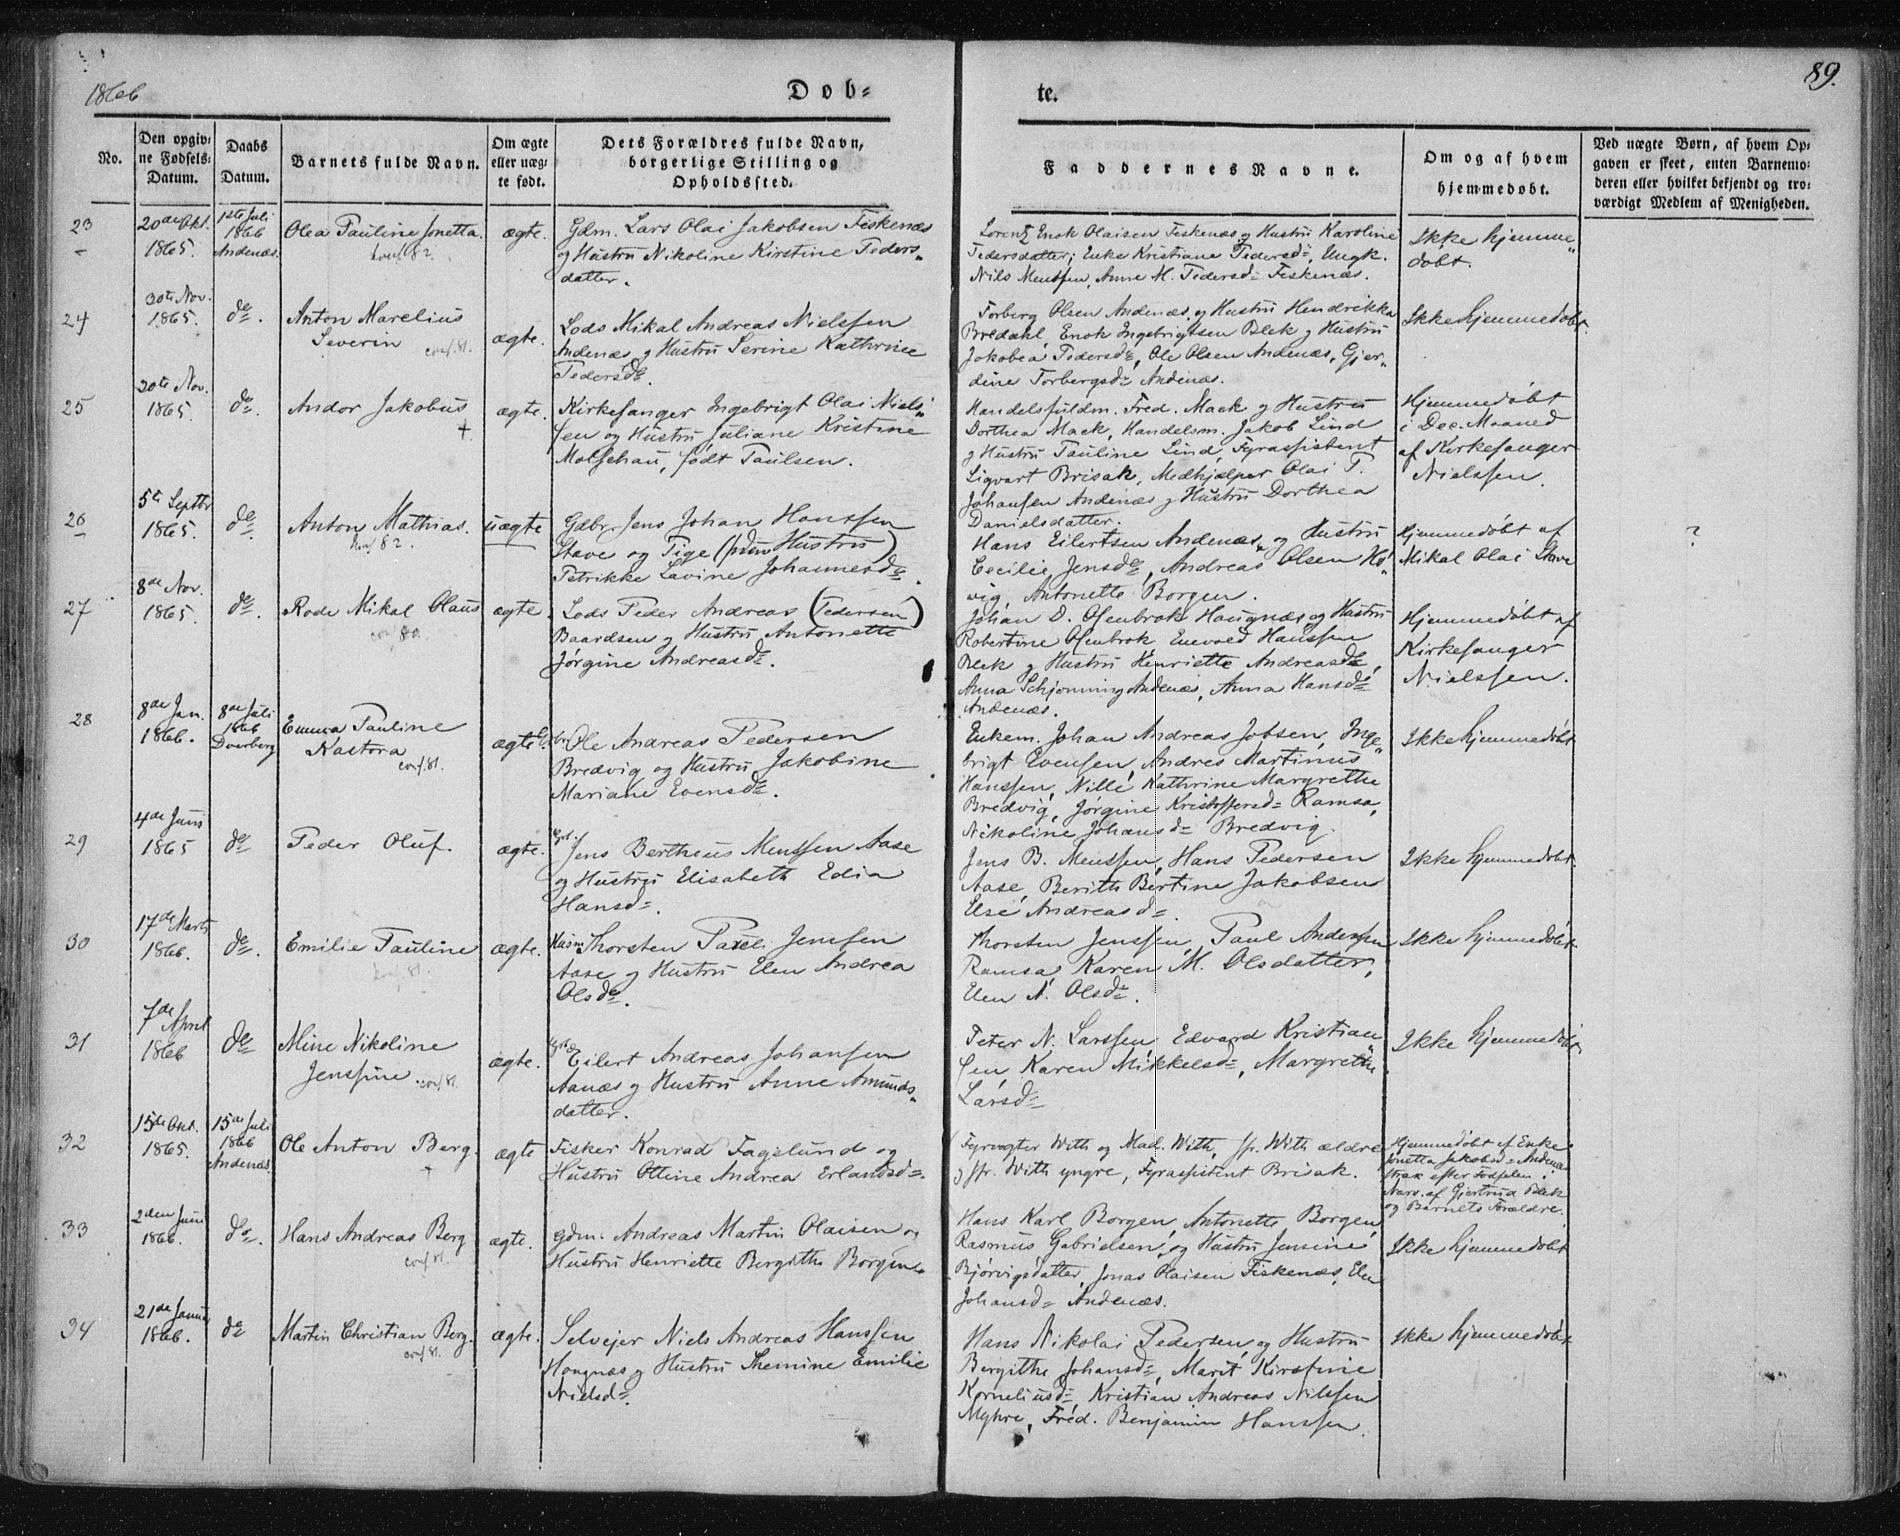 1866
Døb-
te.
89.
No.
Den opgivne Fødsels-Datum.
Daabs Datum.
Barnets fulde Navn.
Om ægte eller uægte født.
Dets Forældres fulde Navn, borgerlige Stilling og Opholdssted.
Faddernes Navne.
Om og af hvem hjemmedøbt.
Ved uægte Børn, af hvem Opgaven er skeet, enten Barnemoderen eller hvilket bekjendt og troværdigt Medlem af Menigheden.
23
20de Okt. 1865.
1ste Juli 1866 Andenæs.
Olea Pauline Jonetta.
conf. 82.
ægte.
Gdm. Lars Olai Jakobsen Fiskenæs
og Hustru Nikoline Kirstine Peders-
datter.
Lorentz Enok Olaisen Fiskenæs og Hustru Karoline
Pedersdatter; Enke Kristiane Pedersd., Ungk.
Nils Mentssen, Anne M. Pedersd. Fiskenæs.
Ikke hjemme-
døbt.
24
30te Nov. 1865.
do.
Anton Marelius
Severin
conf. 81.
ægte.
Lods Mikal Andreas Nielssen
Andenæs og Hustru Serine Kathrine
Pedersd.
Torberg Olsen Andenæs og Hustru Hendrikka
Bredahl, Enok Ingebrigtsen Blek og Hustru
Jakobea Pedersd., Ole Olsen Andenæs, Gjer-
dine Torbergsd. Andenæs.
Ikke hjemmedøbt.
25
20te Nov. 1865.
do.
Andor Jakobus
†
ægte.
Kirkesanger Ingebrigt Olai Niels-
sen og Hustru Juliane Kristine
Molschau, født Paulsen.
Handelsfuldm. Fred. Mack og Hustru
Dorthea Mack, Handelsm. Jakob Lind
og Hustru Pauline Lind, Fyrassistent
Sigvart Brisak, Medhjælper Olai P.
Johansen Andenæs og Hustru Dorthea
Danielsdatter.
Hjemmedøbt
i Dec. Maaned
af Kirkesanger
Nielssen.
26
5te Septbr 1865.
do.
Anton Mathias.
Konf 82.
uægte
Gdbr. Jens Johan Hanssen
Stave og Pige (Hustru)
Petrikke Lavine Johannesd.
Hans Eilertsen Andenæs og Hustru
Cecilie Jensd., Andreas Olsen Hø-
vig, Antonette Borgen.
Hjemmedøbt af
Mikal Olai Stave
?
27
8de Nov. 1865.
do.
Rode Mikal Olaus
conf. 80.
ægte.
Lods Peder Andreas (Pedersen)
Baardsen og Hustru Antonette
Jørgine Andreasd.
Johan D. Osenbrok Haugnæs og Hustru
Robertine Osenbrok Enevold Hanssen
Blek og Hustru Henriette Andreasd.,
Anna Schjønning Andenæs, Anna Hansd.
Andenæs.
Hjemmedøbt af
Kirkesanger
Nielssen.
28
8de Jan. 1866.
8de Juli 1866 Dverberg
Emma Pauline
Kastora
conf. 81.
ægte
Gbr. Ole Andreas Pedersen
Bredvig og Hustru Jakobine
Mariane Evensd.
Enkem. Johan Andreas Jobsen, Inge-
brigt Evensen, Andres Martinus
Hanssen, Nille Kathrine Margrethe
Bredvig, Jørgine Kristoffersd. Ramsa,
Nikoline Johansd. Bredvig.
Ikke hjemmedøbt
29
4de Juni 1865
do.
Peder Oluf.
ægte.
Jens Bertheus Mentssen Aase
og Hustru Elisabeth Edia
Hansd.
Jens B. Mentssen, Hans Pedersen
Aase, Berith Bertine Jakobsen
Else Andreasd.
Ikke hjemmedøbt.
30
17de Marts 1866.
do.
Emilie Pauline
conf. 81.
ægte.
Husm. Thorsten Paul Jenssen
Aase og Hustru Elen Andrea
Olsd.
Thorsten Jenssen, Paul Anderssen
Ramsa, Karen M. Olsdatter,
Elen N. Olsd.
Ikke hjemmedøbt
31
7de April 1866
do.
Mine Nikoline
Jenssine
conf. 81.
ægte.
Eilert Andreas Johansen
Aanæs og Hustru Anne Amunds-
datter.
Peter N. Larssen, Edvard Kristian-
sen, Karen Mikkelsd., Margrethe
Larsd.
Ikke hjemmedøbt
32
15de Okt. 1865.
15de Juli 1866 Andenæs.
Ole Anton Berg.
†
ægte
Fisker Konrad Fagelund og
Hustru Ottine Andrea Erlandsd.
Fyrvogter With og Mad. With, Jfr. With ældre
og Jfr. With yngre, Fyrassistent Brisak.
Hjemmedøbt af Enke
Jonetta Jakobsd. Andenæs
strax efter Fødselen.
Nærv. af Gjertrud Blek
og Barnets Forældre.
33
2den Juni 1866.
do.
Hans Andreas Berg
conf. 81.
ægte.
Gdm. Andreas Martin Olaisen og
Hustru Henriette Bergithe Borgen
Hans Karl Borgen, Antonette Borgen,
Rasmus Gabrielsen og Hustru Jensine
Bjørvigsdatter, Jonas Olaisen Fiskenæs, Elen
Johansd. Andenæs.
Ikke hjemmedøbt
34
21de Januar 1866.
do.
Martin Christian Berg.
conf. 81.
ægte.
Selvejer Niels Andreas Hanssen
Haugnæs og Hustru Themine Emilie
Nielsd.
Hans Nikolai Pedersen og Hustru
Bergithe Johansd., Marit Kirstine
Korneliusd., Kristian Andreas Nilssen
Myhre, Fred. Benjamin Hanssen.
Ikke hjemmedøbt